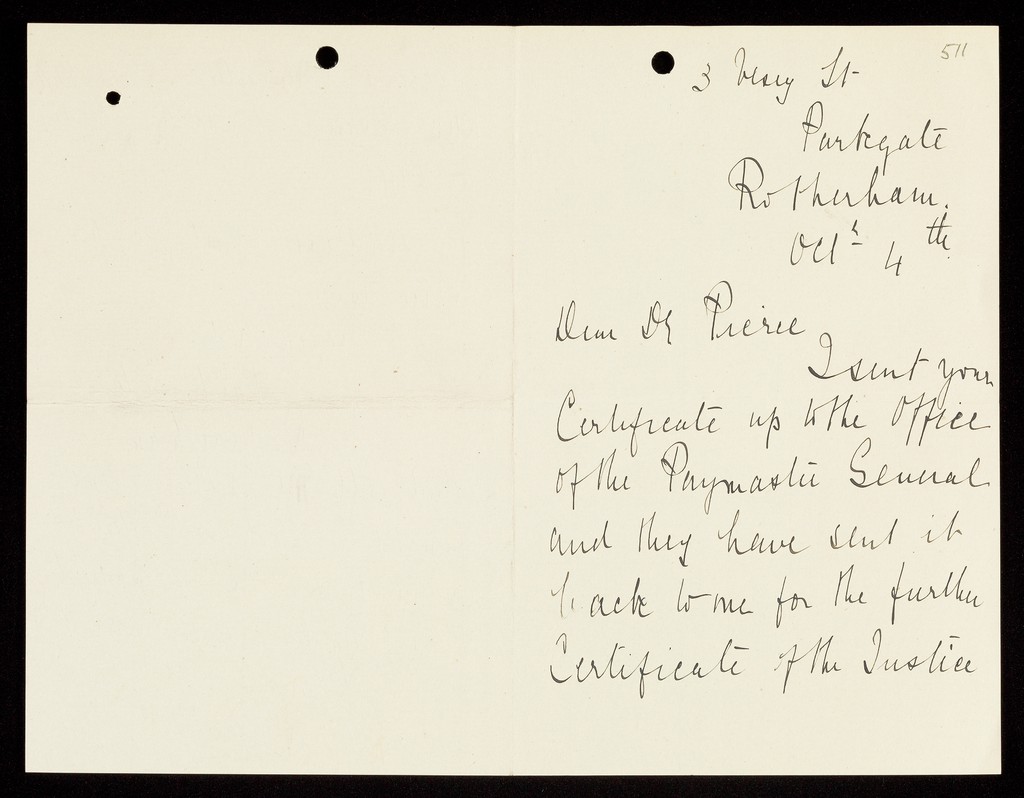 511
3 Vesey St
Parkgate
Rotherham.
Octr 4th
Dear Dr Pierce
I sent your
Certificate up to the Office
of the Paymaster General
and they have sent it
back to me for the further
Certificate of the Justice